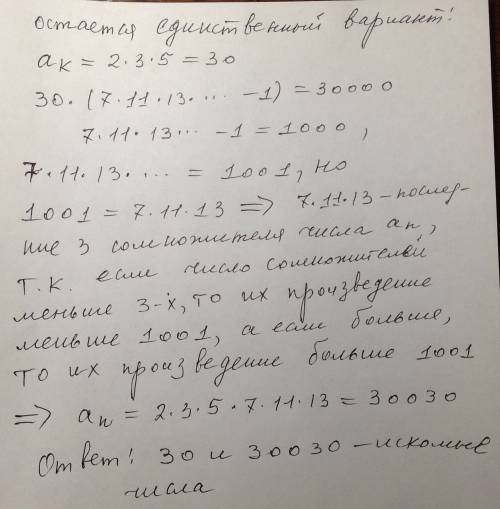 остается единственный вариант!
aₖ = 2·3·5 = 30
30·(7·11·13·... -1) = 30000
7·11·13... -1 = 1000,
7·11·13·... = 1001, но
1001 = 7·11·13 => 7·11·13 - послед-
ние 3 сомножителя числа aₙ,
т.к. если число сомножителей
меньше 3-х, то их произведение
меньше 1001, а если больше,
то их произведение больше 1001
=> aₙ = 2·3·5·7·11·13 = 30030
Ответ! 30 и 30030 - искомые
числа